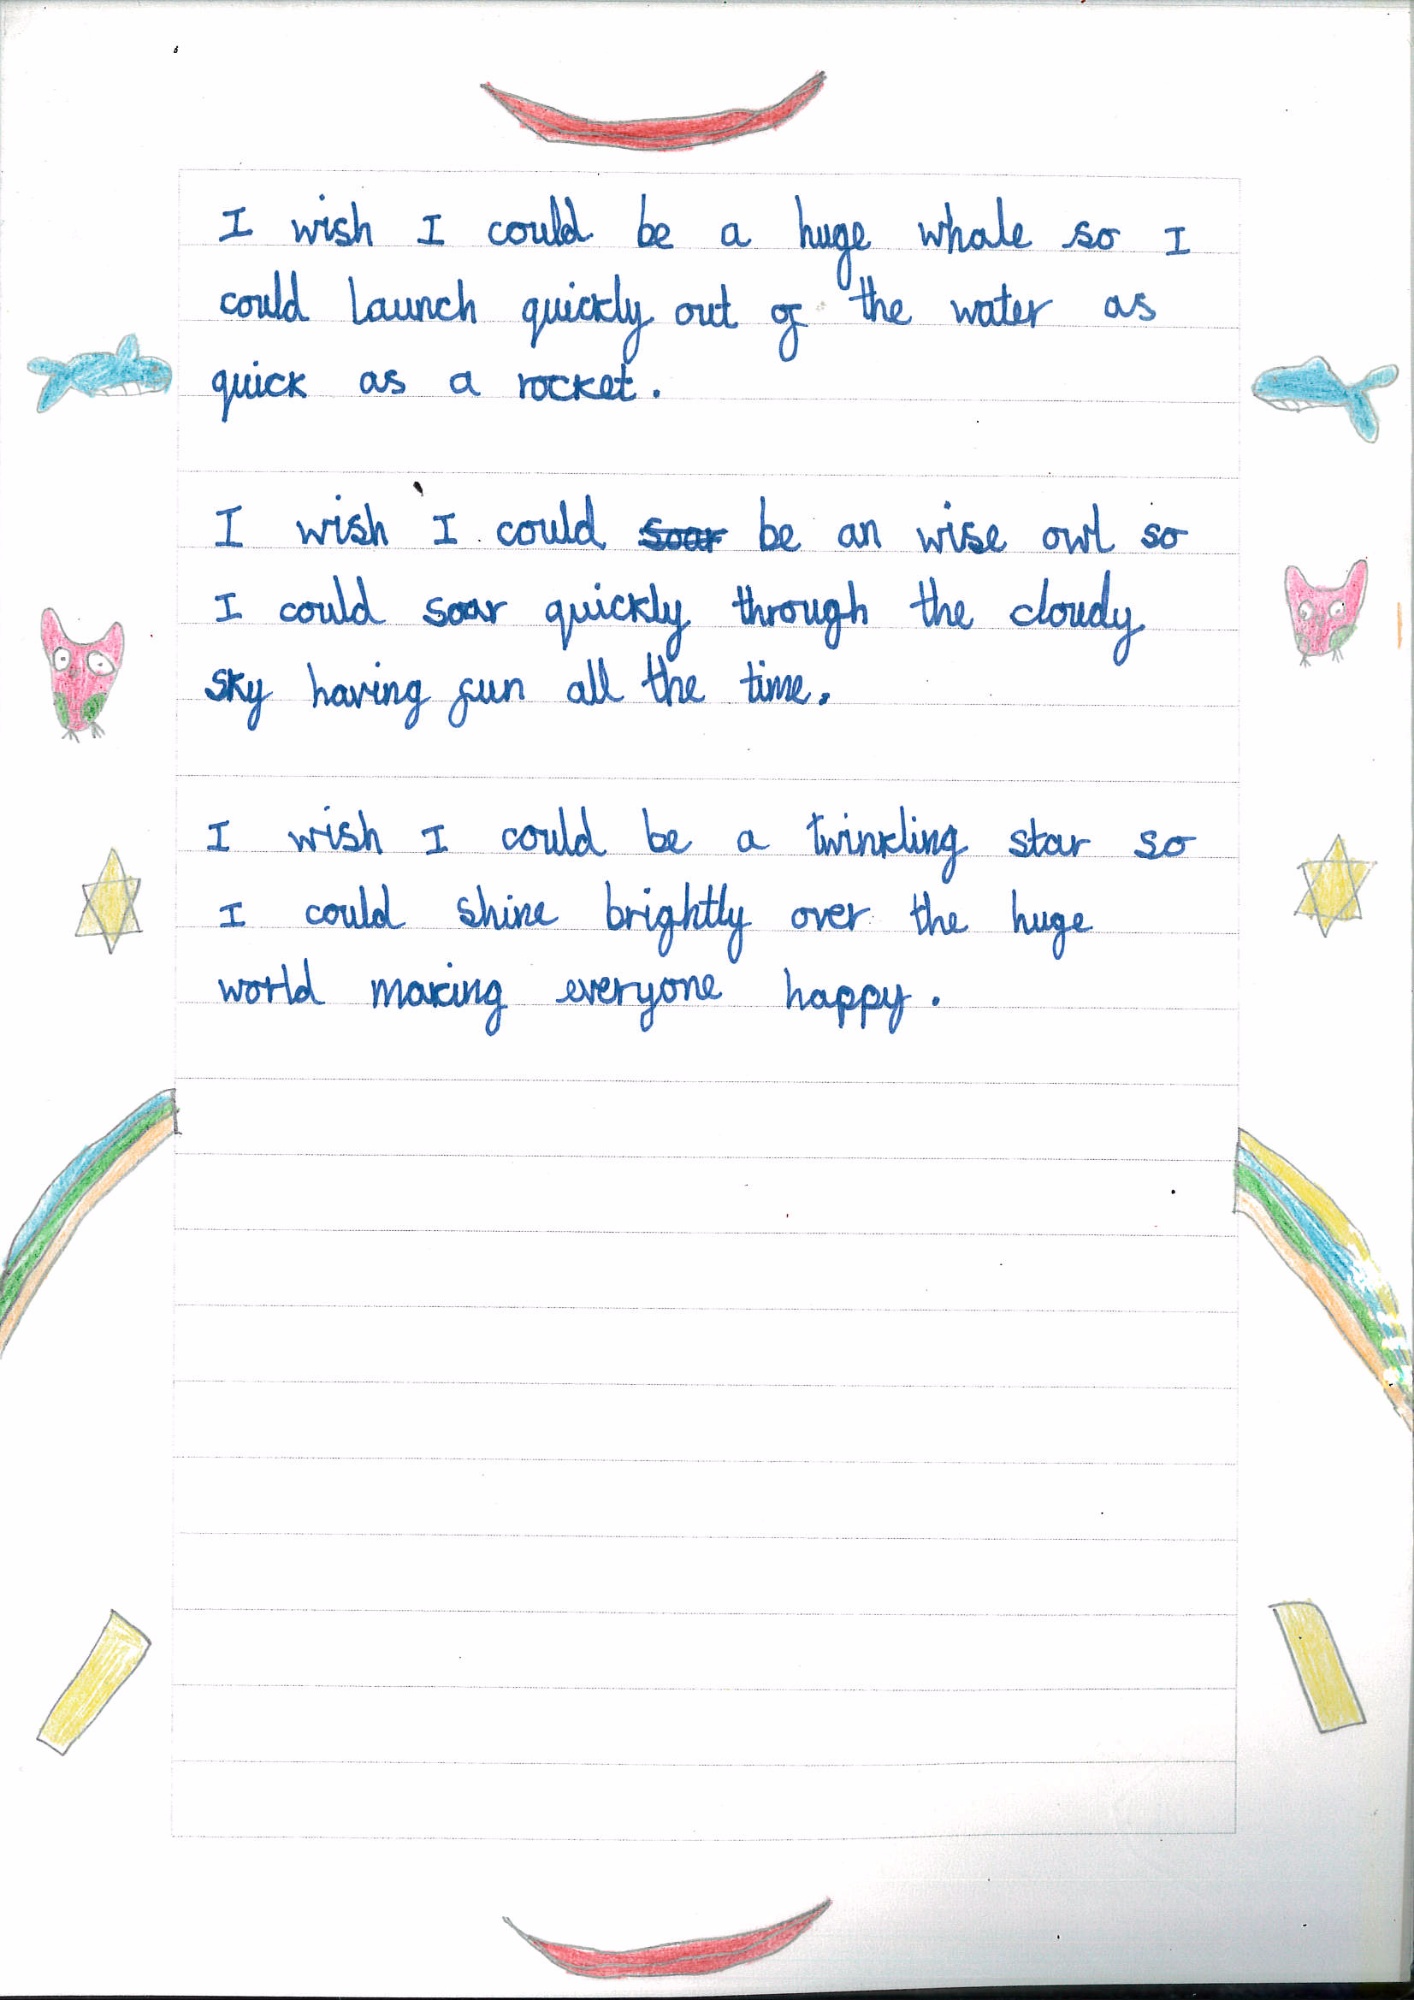 I wish I could be a huge whale so I
could launch quickly out of the water as
quick as a rocket.
I wish I could soar be an wise owl so
I could soar quickly through the cloudy
sky having fun all the time.
I wish I could be a twinkling star so
I could shine brightly over the huge
world making everyone happy.